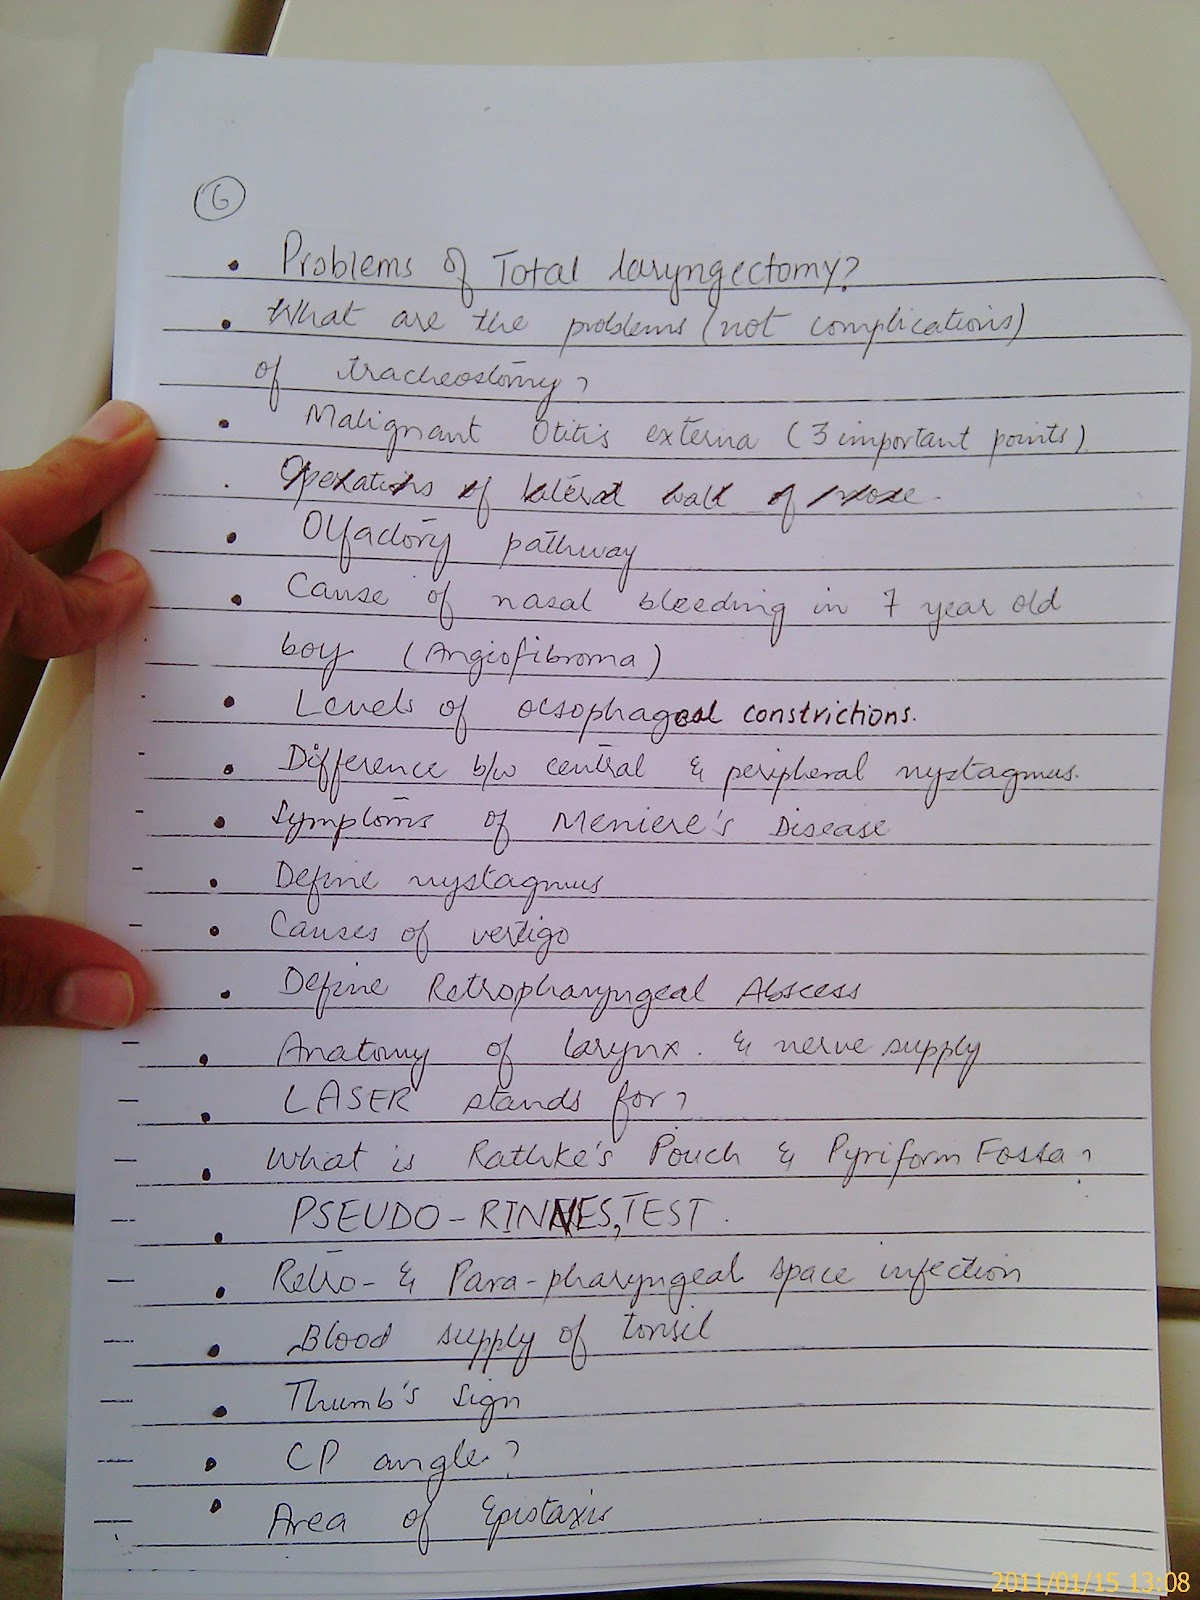 6
• Problems of Total laryngectomy?
• What are the problems (not complications)
of tracheostomy?
• Malignant Otitis externa (3 important points).
. Operations of lateral wall of nose.
• Olfactory pathway
• Cause of nasal bleeding in 7 year old
boy (Angiofibroma)
• Levels of oesophageal constrictions.
• Difference b/w central & peripheral nystagmus.
• Symptoms of Meniere's Disease
• Define nystagmus
• Causes of vertigo
• Define Retropharyngeal Abscess
• Anatomy of larynx. & nerve supply
• LASER stands for?
• What is Rathke's Pouch & Pyriform Fossa?
• PSEUDO-RINNES, TEST.
• Retro- & Para-pharyngeal space infection
• Blood supply of tonsil
• Thumb's sign
• CP angle?
• Area of Epistaxis
2011/01/15 13:08